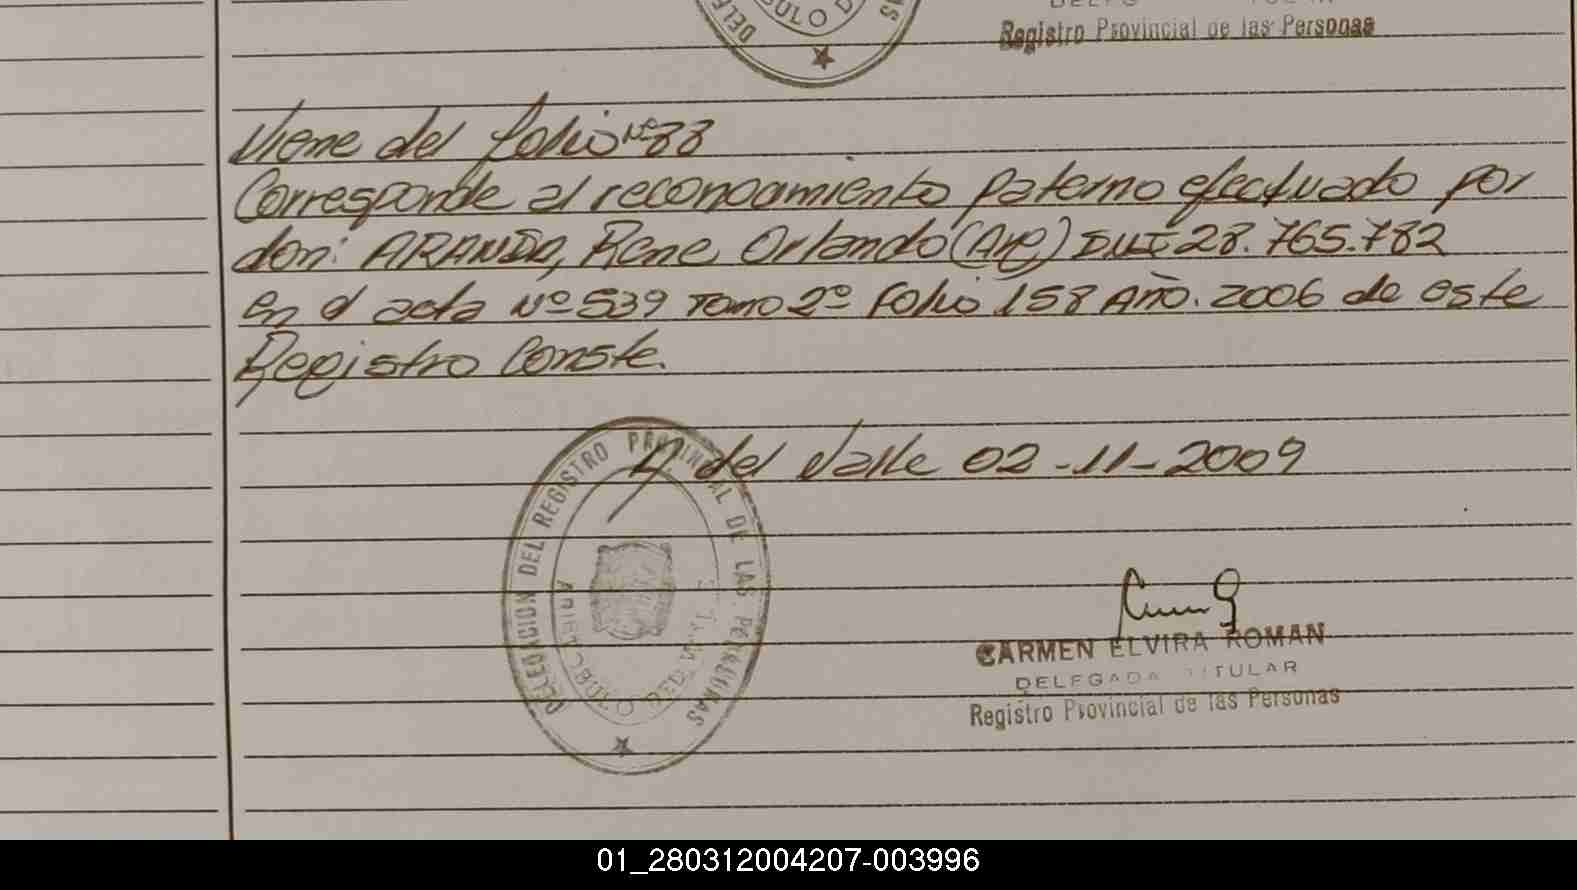 Registro Provincial de las Personas
Viene del folio Nº 88
Corresponde al reconocimiento paterno efectuado por
don: ARANDA, Rene Orlando (Arg) DNI 28.765.782
en el acta Nº 539 Tomo 2º Folio 158 Año. 2006 de este
Registro Conste.
del Valle 02-11-2009
DELEGACION DEL REGISTRO PROVINCIAL DE LAS PERSONAS
CARMEN ELVIRA ROMAN
DELEGADA TITULAR
Registro Provincial de las Personas
01_280312004207-003996